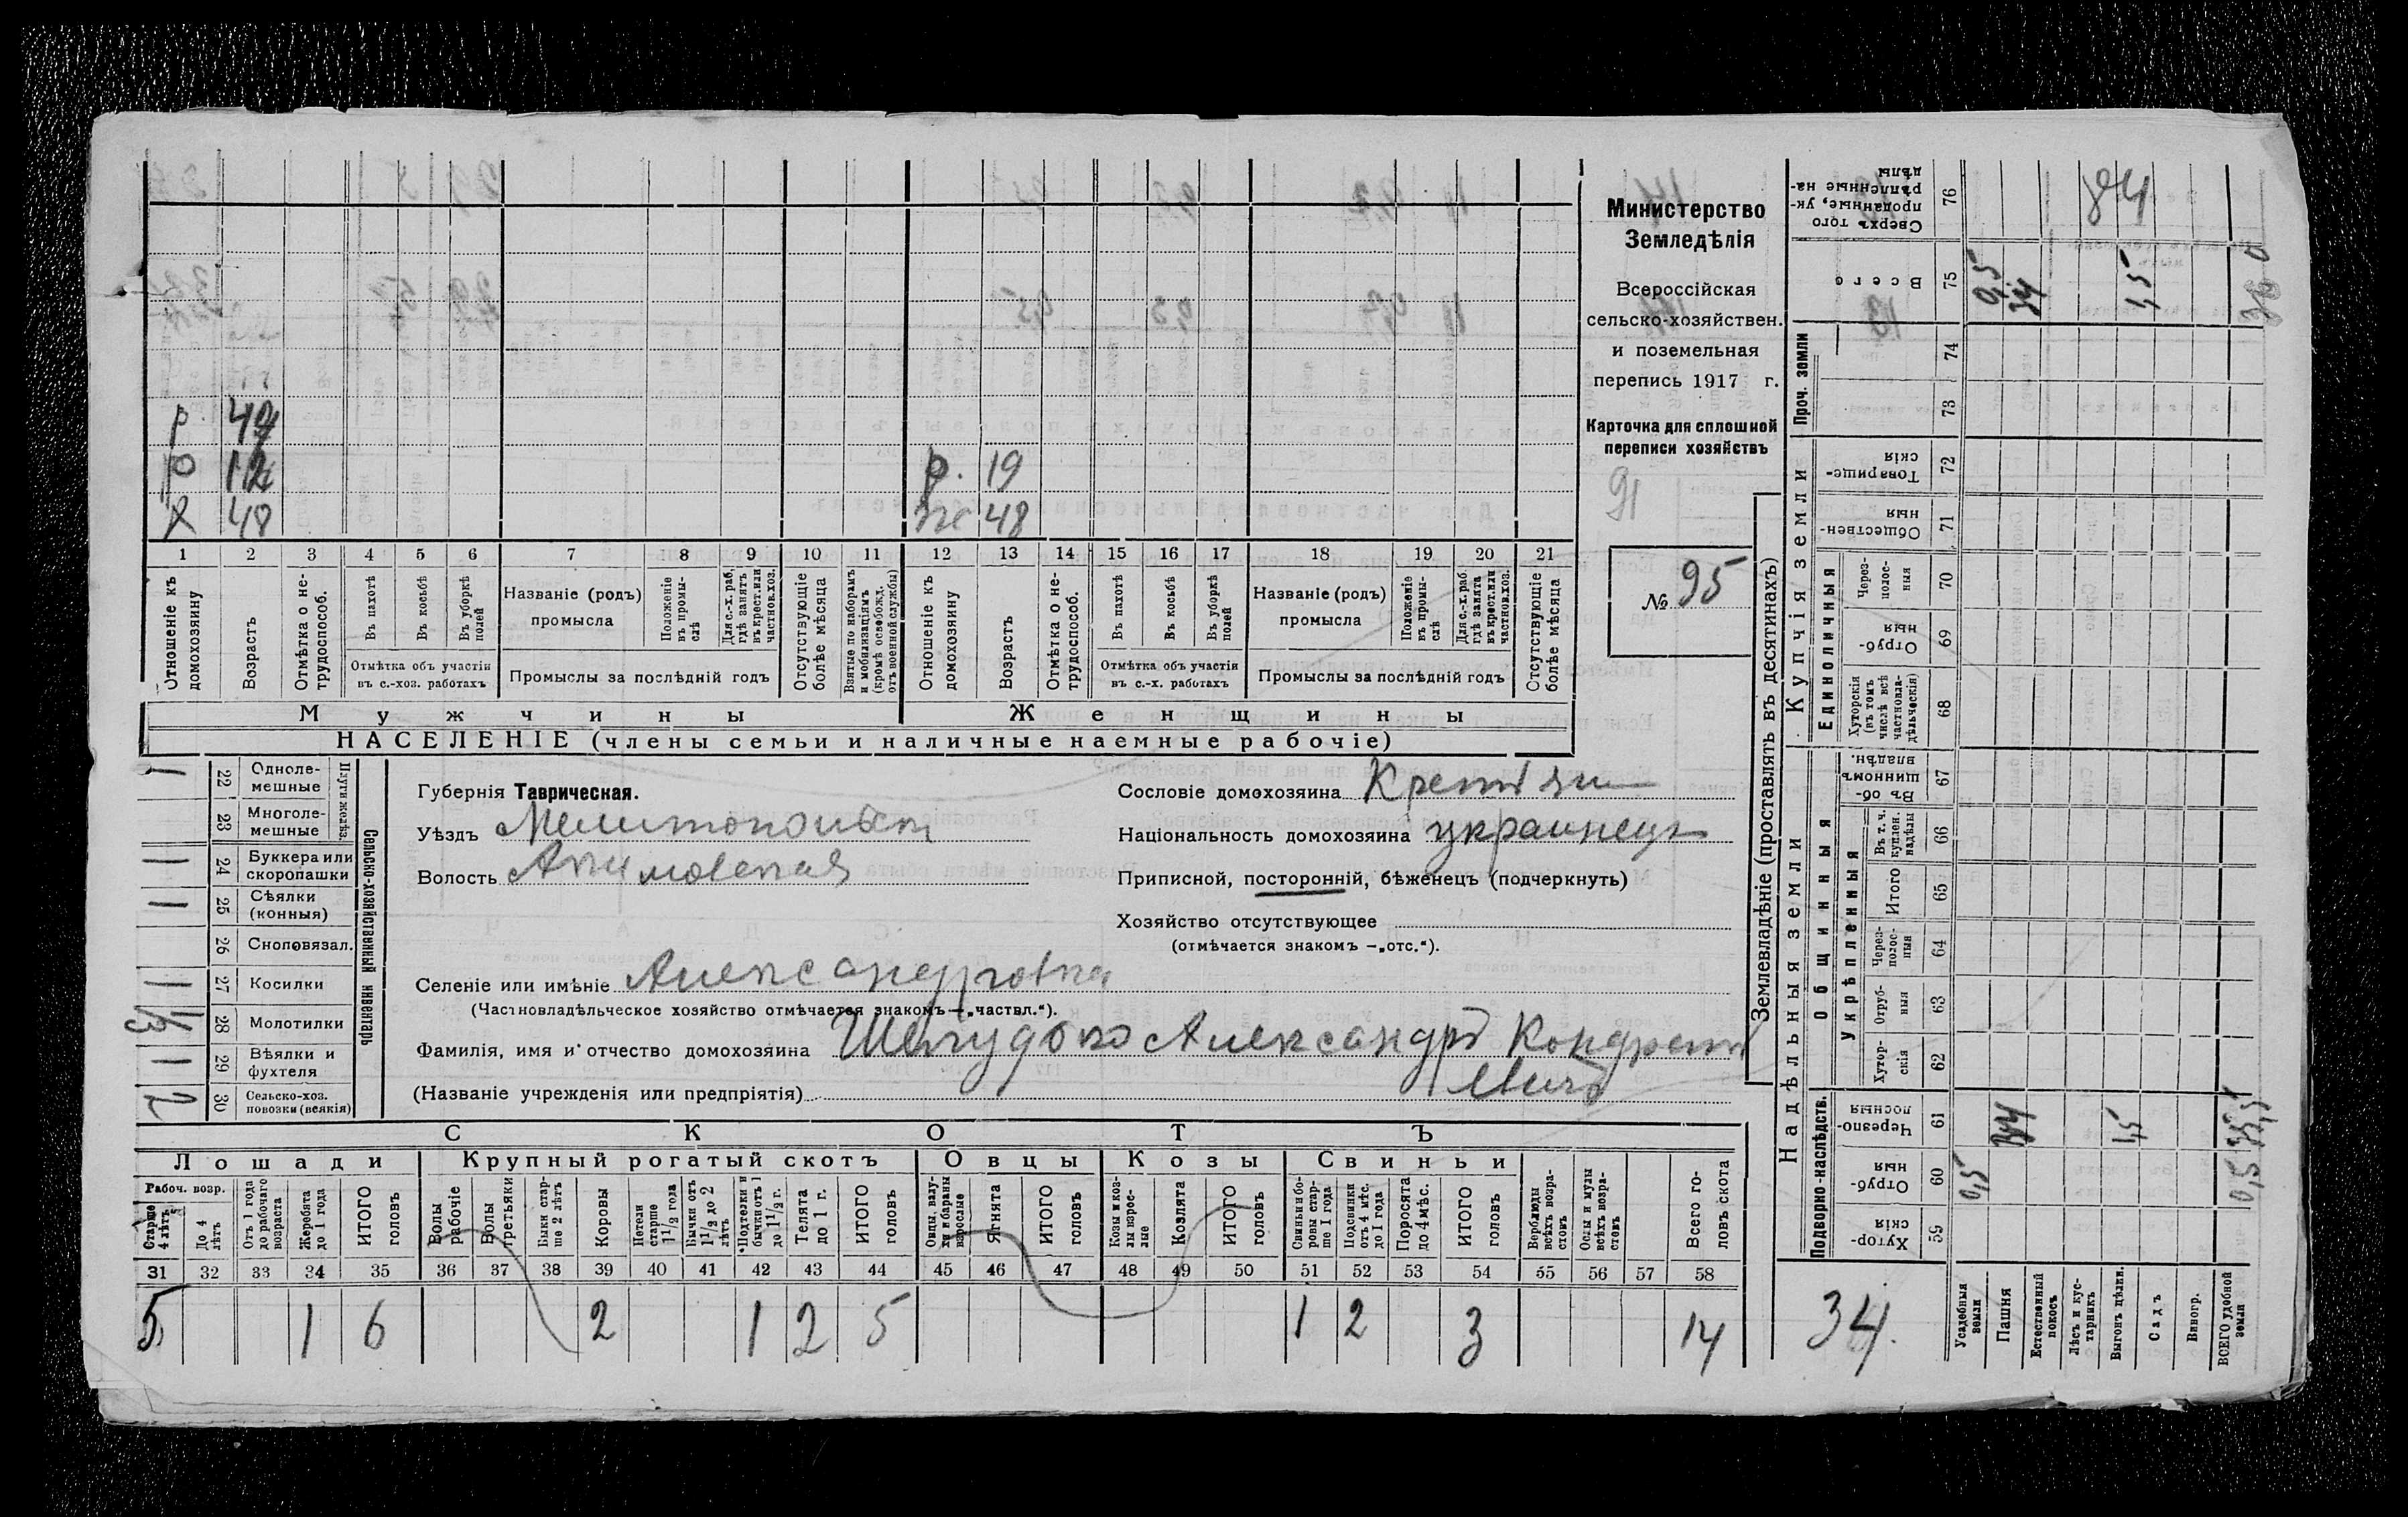 р. 49
р 12 р. 19
х 48 ж 48
1 2 3 4 5 6 7 8 9 10 11 12 13 14 15 16 17 18 19 20 21
Отношеніе къ домохозяину
Возрастъ
Отмѣтка о не-трудоспособ.
Въ пахотѣ
Въ косьбѣ
Въ уборкѣ полей
Отмѣтка объ участіи
въ с.-хоз. работахъ
Названіе (родъ)
промысла
Положеніе въ промы-слѣ
Для с.-х. раб. гдѣ занятъ въ крест. или частнов. хоз.
Промыслы за послѣдній годъ
Отсутствующіе болѣе мѣсяца
Взятые по наборамъ и мобилизаціямъ (кромѣ освобожд. отъ военной службы)
Отношеніе къ домохозяину
Возрастъ
Отмѣтка о не-трудоспособ.
Въ пахотѣ
Въ косьбѣ
Въ уборкѣ полей
Отмѣтка объ участіи
въ с.-х. работахъ
Названіе (родъ)
промысла
Положеніе въ промы-слѣ
Для с.-х. раб гдѣ занята въ крест. или частнов. хоз.
Промыслы за послѣдній годъ
Отсутствующіе болѣе мѣсяца
Мужчины
Женщины
НАСЕЛЕНІЕ (члены семьи и наличные наемные рабочіе)
Министерство
Земледѣлія
Всероссійская
сельско-хозяйствен.
и поземельная
перепись 1917 г.
Карточка для сплошной
переписи хозяйствъ
91
№ 95
Сельско-хозяйственный инвентарь
Плуги желѣз.
22 Одноле-мешные 1
23 Многоле-мешные
24 Буккера или скоропашки 1
25 Сѣялки (конныя) 1
26 Сноповязал.
27 Косилки 1
28 Молотилки
29 Вѣялки и фухтеля 1
30 Сельско-хоз. повозки (всякія) 2
Губернія Таврическая.
Уѣздъ Мелитопольск
Волость Акимовская
Сословіе домохозяина Крестьян
Національность домохозяина украинецъ
Приписной, посторонній, бѣженецъ (подчеркнуть)
Хозяйство отсутствующее
(отмѣчается знакомъ —„отс.“).
Селеніе или имѣніе Александровка
(Частновладѣльческое хозяйство отмѣчается знакомъ—„частвл.“).
Фамилія, имя и отчество домохозяина Шелудько Александръ Кондрать
евичъ
(Названіе учрежденія или предпріятія)
СКОТЪ
Лошади Крупный рогатый скотъ Овцы Козы Свиньи
Рабоч. возр.
Старше 4 лѣтъ
До 4 лѣтъ
Отъ 1 года до рабочаго возраста
Жеребята до 1 года
ИТОГО головъ
Волы рабочіе
Волы третьяки
Быки стар-ше 2 лѣтъ
Коровы
Нетели старше 1 1/2 года
Бычки отъ 1 1/2 до 2 лѣтъ
Подтелки и бычки отъ 1 до 1 1/2 г.
Телята до 1 г.
ИТОГО головъ
Овцы, валу-хи и бараны взрослые
Ягнята
ИТОГО головъ
Козы и коз-лы взрос-лые
Козлята
ИТОГО головъ
Свиньи и бо-ровы стар-ше 1 года
Подсвинки отъ 4 мѣс. до 1 года
Поросята до 4 мѣс.
ИТОГО головъ
Верблюды всѣхъ возра-стовъ
Ослы и мулы всѣхъ возра-стовъ
Всего го-ловъ скота
31 32 33 34 35 36 37 38 39 40 41 42 43 44 45 46 47 48 49 50 51 52 53 54 55 56 57 58
5 1 6 2 1 2 5 1 2 3 14
Землевладѣніе (проставлять въ десятинахъ)
Надѣльныя земли
Купчія земли
Проч. земли
Подворно-наслѣдств.
Общинныя
Укрѣпленныя
Единоличныя
59 Хутор-скія
60 Отруб-ныя
61 Черезпо-лосныя
62 Хутор-скія
63 Отруб-ныя
64 Через-полос-ныя
65 Итого
66 Въ т. ч. куплен. надѣлы
67 Въ об-щинномъ владѣн.
68 Хуторскія (въ томъ числѣ всѣ частновла-дѣльческія)
69 Отруб-ныя
70 Через-полос-ныя
71 Обществен-ныя
72 Товарище-скія
73
74
75 Всего
76 Сверхъ того проданные, ук-рѣпленные на-дѣлы
34.
Усадебныя земли 0,5 0,5
Пашня 34 34
Естественный покосъ
Лѣсъ и кус-тарникъ
Выгонъ цѣлин. 1,5 1,5
Садъ
Виногр.
ВСЕГО удобной земли 0,5 35,5